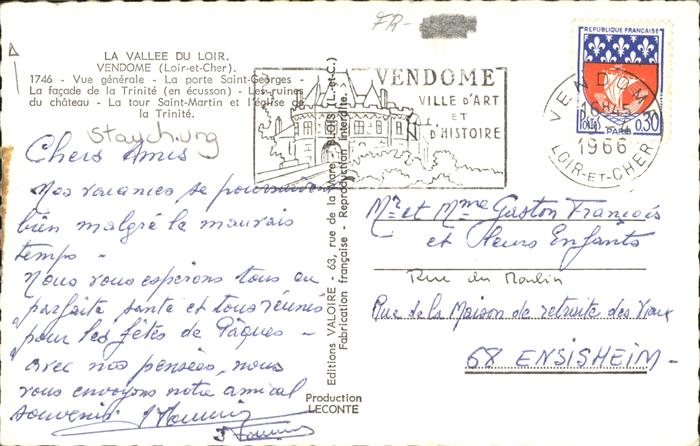 FR-
LA VALLEE DU LOIR.
VENDOME (Loir-et-Cher).
1746 - Vue générale - La porte Saint-Georges -
La façade de la Trinité (en écusson) - Les ruines
du château - La tour Saint-Martin et l'église de
la Trinité.
Chers Amis
Nos vacances se poursuivent
bien malgré le mauvais
temps -
Nous vous espérons tous en
parfaite santé et tous réunis
pour les fêtes de Pâques -
avec nos pensées, nous
vous envoyons notre amical
souvenir
Editions VALOIRE - 63, rue de la Mare, BLOIS (L.-et-C.)
Fabrication française - Reproduction interdite.
Production
LECONTE
VENDOME
VILLE D'ART
ET
D'HISTOIRE
REPUBLIQUE FRANÇAISE
POSTES
0,30
PARIS
VENDOME
1966
LOIR-ET-CHER
Mr et Mme Gaston François
et leurs Enfants
Rue du Moulin
Rue de la Maison de retraite des Vieux
68 ENSISHEIM -